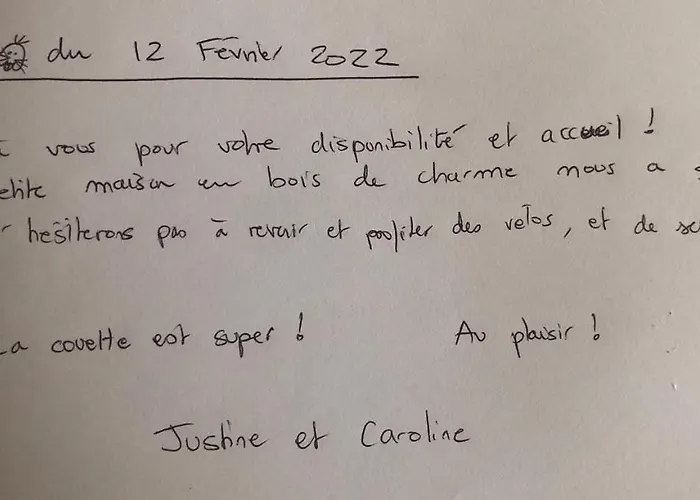 du 12 Février 2022
vous pour votre disponibilité et accueil !
maison en bois de charme nous a
hésiterons pas à revenir et profiter des vélos, et de
La couette est super ! Au plaisir !
Justine et Caroline